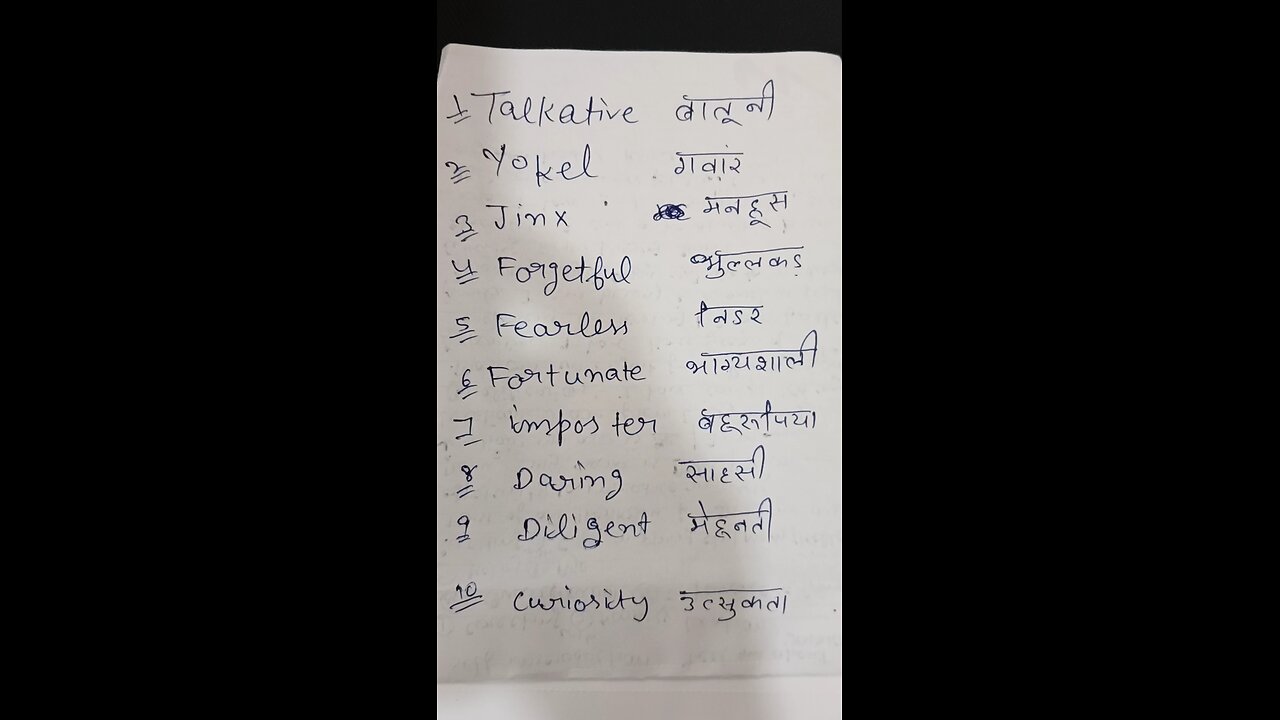 1 Talkative बातूनी
2 Yokel गवांर
3 Jinx मनहूस
4 Forgetful भुल्लकड़
5 Fearless निडर
6 Fortunate भाग्यशाली
7 imposter बहूरूपिया
8 Daring साहसी
9 Diligent मेहनती
10 curiosity उत्सुकता